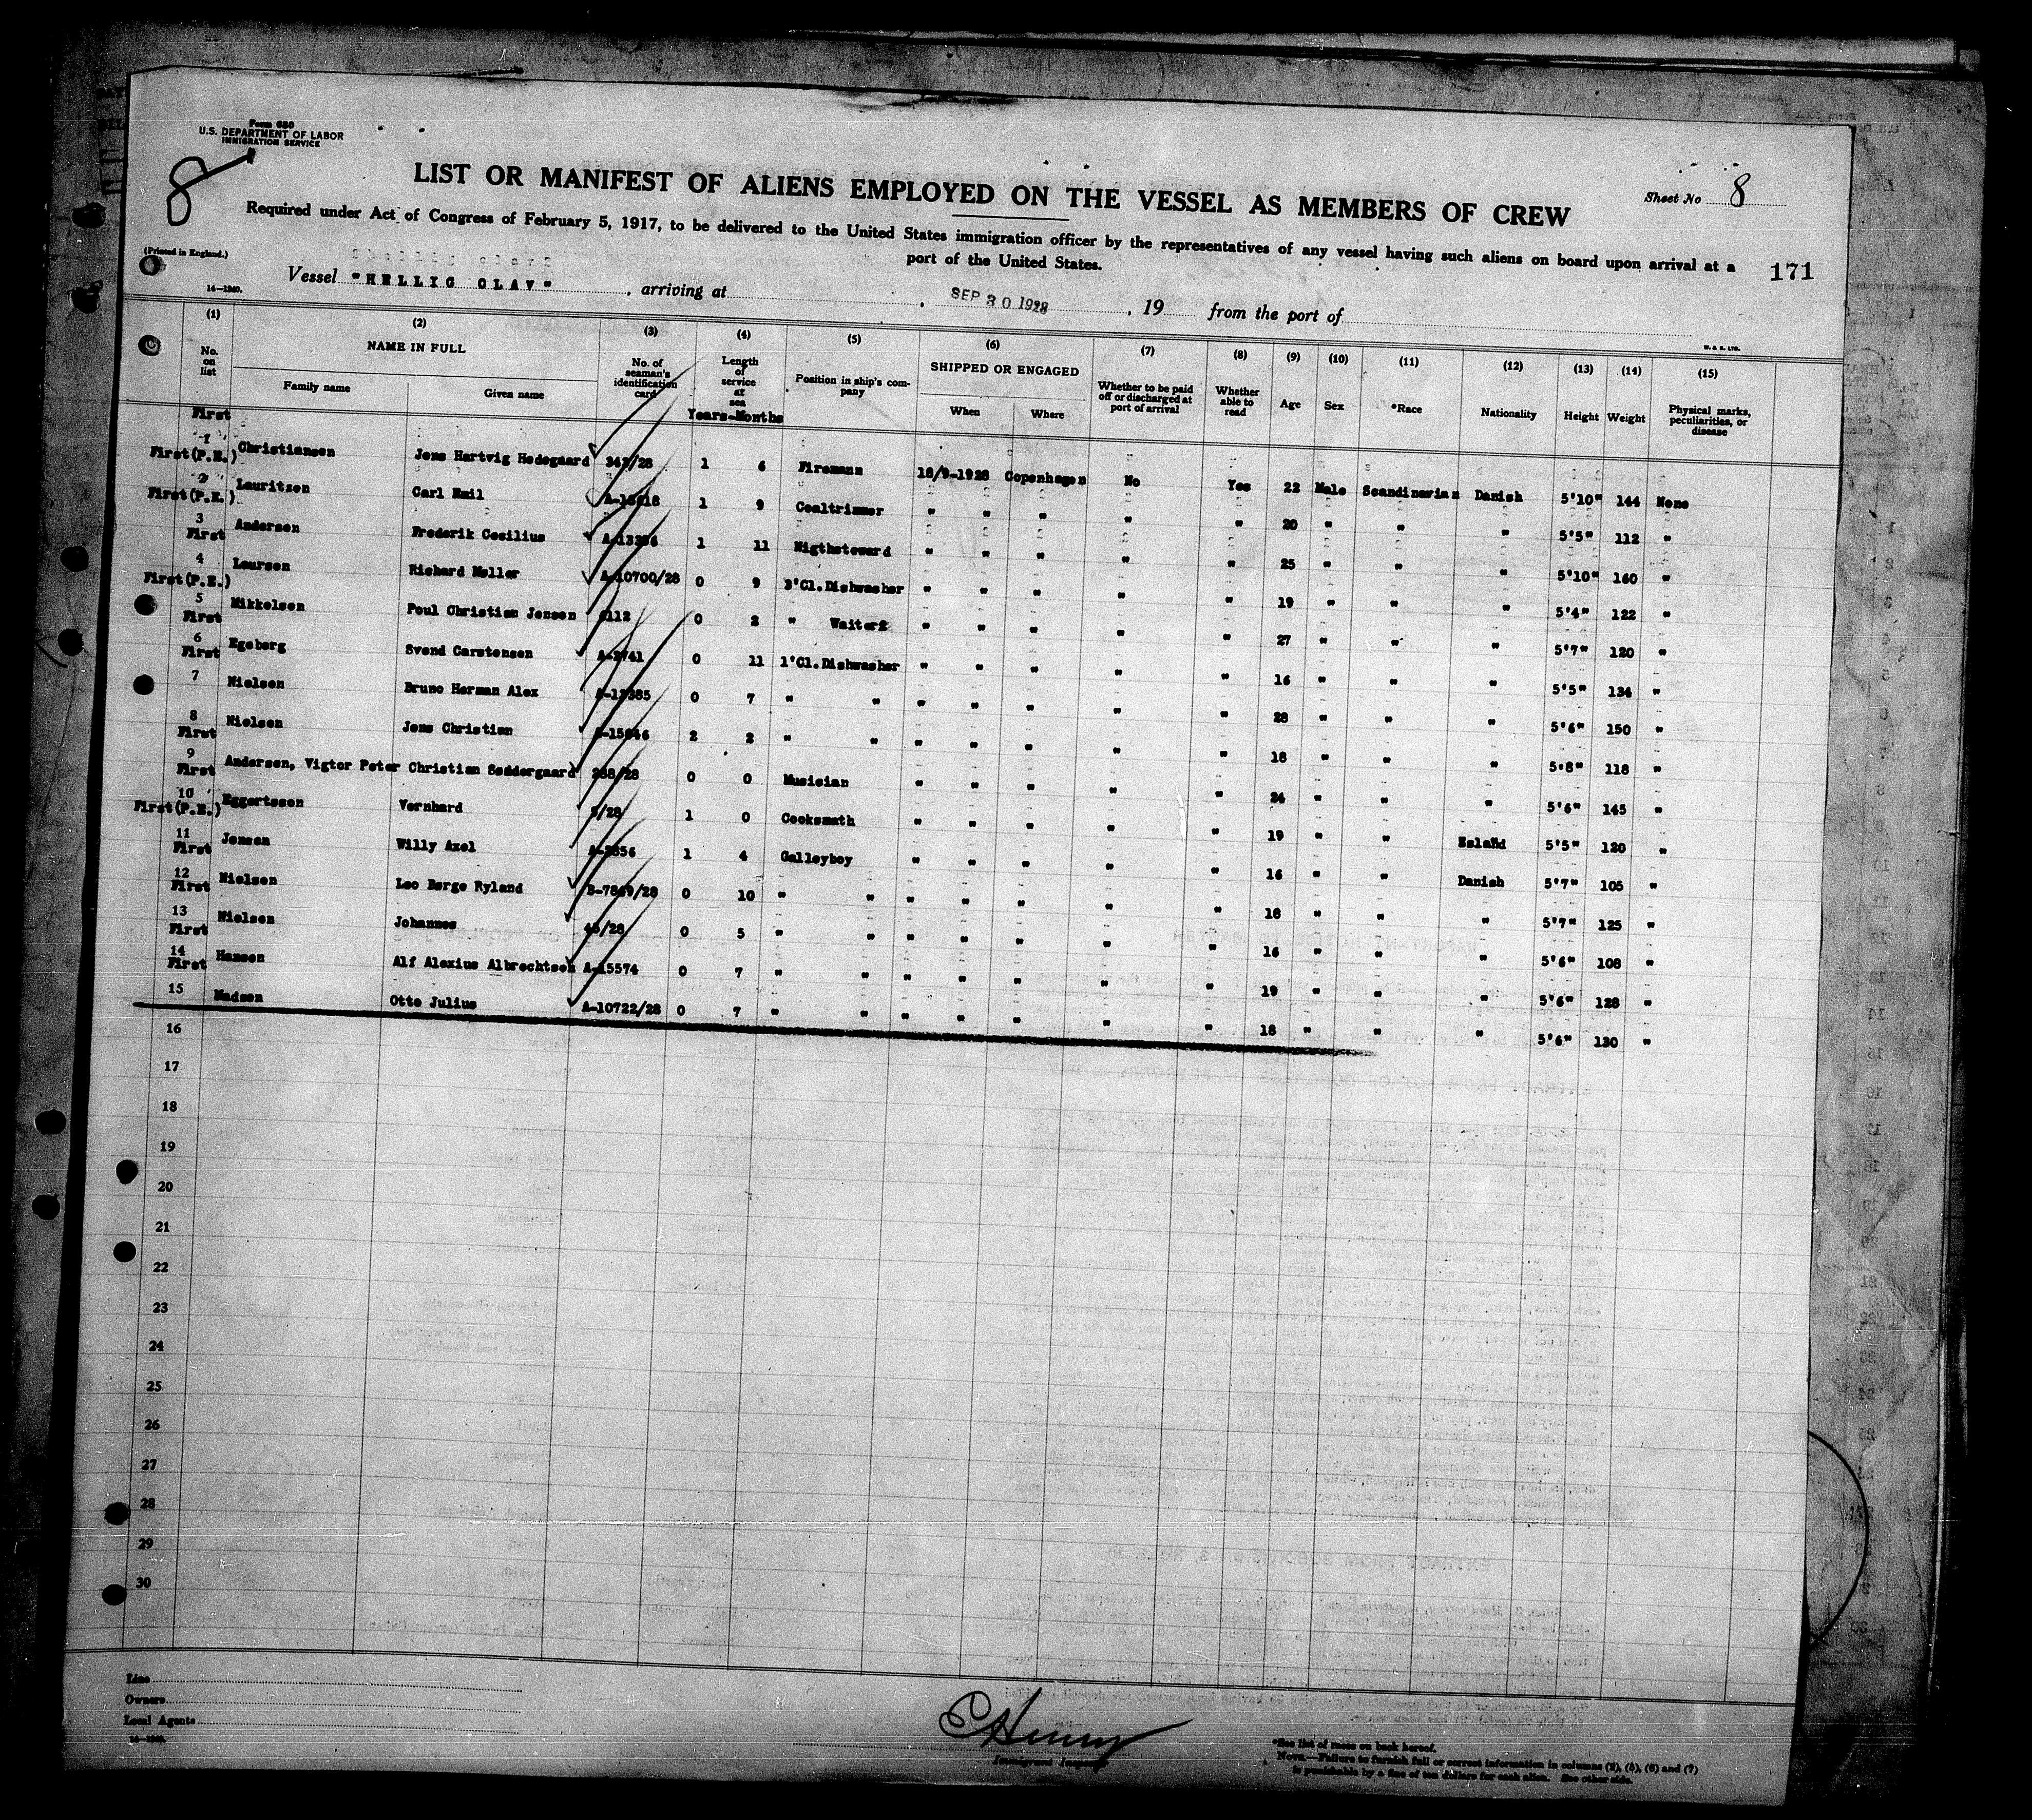 Form 680
U.S. DEPARTMENT OF LABOR
IMMIGRATION SERVICE
8
LIST OR MANIFEST OF ALIENS EMPLOYED ON THE VESSEL AS MEMBERS OF CREW
Sheet No 8
Required under Act of Congress of February 5, 1917, to be delivered to the United States immigration officer by the representatives of any vessel having such aliens on board upon arrival at a
port of the United States.
171
(Printed in England.)
14—1240.
Vessel "HELLIG OLAV", arriving at , SEP 30 1928, 19 from the port of
(1) (2) (3) (4) (5) (6) (7) (8) (9) (10) (11) (12) (13) (14) (15)
No. on list NAME IN FULL Family name Given name No. of seaman's identification card Length of service at sea Position in ship's company SHIPPED OR ENGAGED When Where Whether to be paid off or discharged at port of arrival Whether able to read Age Sex *Race Nationality Height Weight Physical marks, peculiarities, or disease
Years-Months
First
1 Christiansen Jens Hartvig Hedegaard 347/28 1 6 Firemann 18/9-1928 Copenhagen No Yes 22 Male Scandinavian Danish 5'10" 144 None
First(P.E.)
2 Lauritzen Carl Emil 1 9 Coaltrimmer " " " " " 20 " " " 5'5" 112 "
First(P.E.)
3 Andersen Frederik Cecilius 1 11 Nigthsteward " " " " " 25 " " " 5'10" 160 "
First
4 Laursen Richard Møller A-10700/28 0 9 3'Cl.Dishwasher " " " " " 19 " " " 5'4" 122 "
First(P.E.)
5 Mikkelsen Poul Christian Jensen 0 2 " Waiter " " " " " 27 " " " 5'7" 120 "
First
6 Egeberg Svend Carstensen A-2741 0 11 1'Cl.Dishwasher " " " " " 16 " " " 5'5" 134 "
First
7 Nielsen Bruno Herman Alex 0 7 " " " " " " " 28 " " " 5'6" 150 "
8 Nielsen Jens Christian 2 2 " " " " " " " 18 " " " 5'8" 118 "
First
9 Andersen, Vigtor Peter Christian Søddergaard 288/28 0 0 Musician " " " " " 24 " " " 5'6" 145 "
First
10 Eggertssen Vernhard 1 0 Cooksmath " " " " " 19 " " 5'5" 120 "
First(P.E.)
11 Jensen Willy Axel 1 4 Galleyboy " " " " " 16 " " Danish 5'7" 105 "
First
12 Nielsen Leo Børge Ryland 0 10 " " " " " " " 18 " " " 5'7" 125 "
First
13 Nielsen Johannes 0 5 " " " " " " " 16 " " " 5'6" 108 "
First
14 Hansen Alf Alexius Albrechtsen A-15574 0 7 " " " " " " " 19 " " " 5'6" 128 "
First
15 Madsen Otto Julius A-10722/28 0 7 " " " " " " " 18 " " " 5'6" 130 "
16
17
18
19
20
21
22
23
24
25
26
27
28
29
30
Line
Owners
Local Agents
14—1240.
C Henry
Immigrant Inspector
*See list of races on back hereof.
NOTE.—Failure to furnish full or correct information in columns (2), (5), (6) and (7)
is punishable by a fine of ten dollars for each alien. See other side.